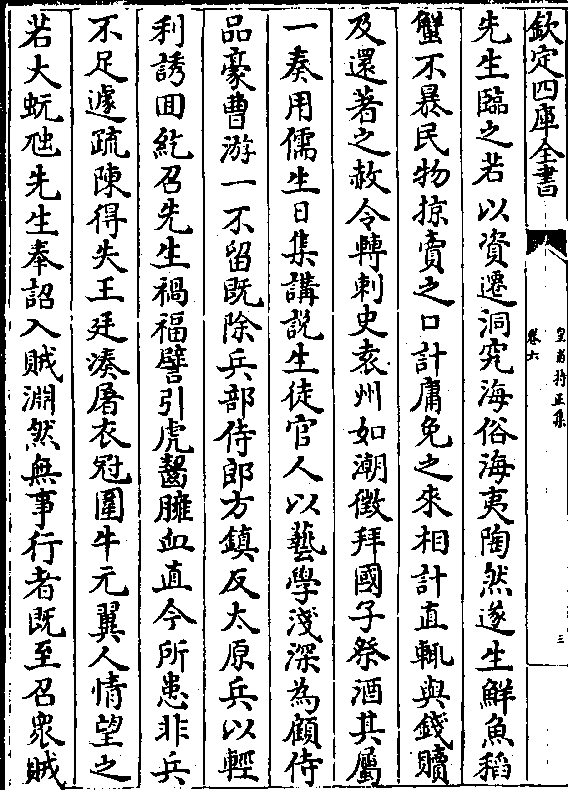 欽定四庫全書
皇甫持正集
卷六
三
先生臨之若以資遷洞究海俗海夷陶然遂生鮮魚稻
蟹不暴民物掠賣之口計庸免之來相計直輒與錢贖
及還著之赦令轉刺史袁州如潮徵拜國子祭酒其屬
一奏用儒生日集講說生徒官人以藝學淺深為顧侍
品豪曹游一不留既除兵部侍郎方鎮反太原兵以輕
利誘囬紇召先生禍福譬引虎齧臃血直今所患非兵
不足遽疏陳得失王廷湊屠衣冠圍牛元翼人情望之
若大蚖虺先生奉詔入賊淵然無事行者既至召衆賊